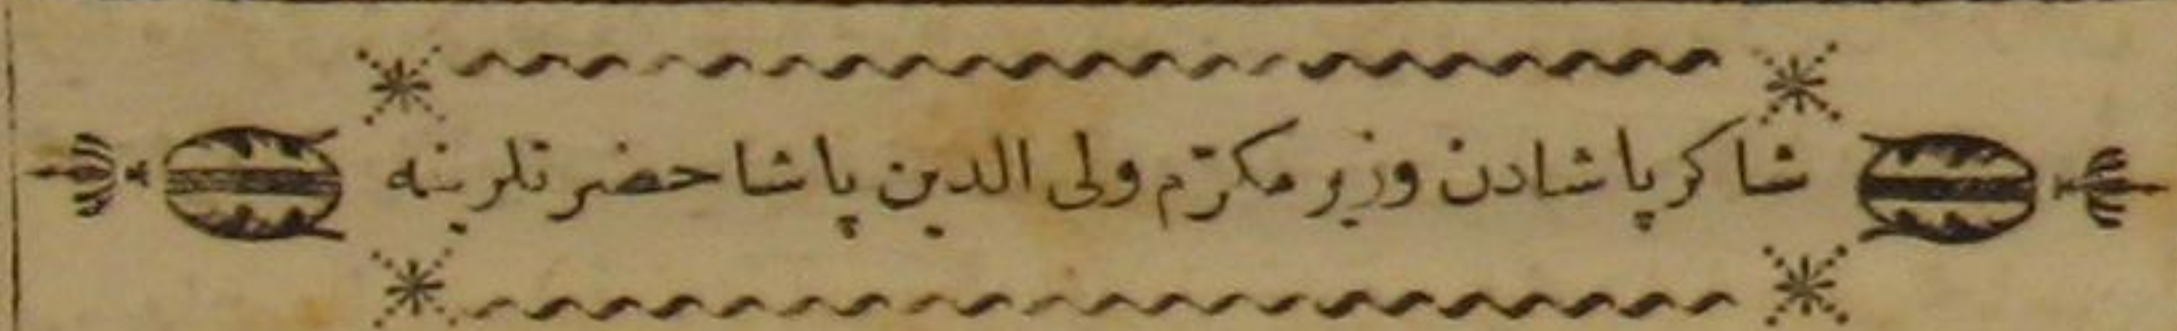 شاكر پاشادن وزیر مكرّم ولی الدین پاشا حضرتلرینه